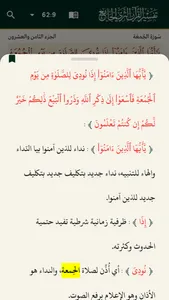 62:9
تفسير القرآن الثري الجامع
سورة الجمعة
الجزء الثامن والعشرون
﴿يَٰٓأَيُّهَا ٱلَّذِينَ ءَامَنُوٓا۟ إِذَا نُودِىَ لِلصَّلَوٰةِ مِن يَوْمِ
ٱلْجُمُعَةِ فَٱسْعَوْا۟ إِلَىٰ ذِكْرِ ٱللَّهِ وَذَرُوا۟ ٱلْبَيْعَ ذَٰلِكُمْ خَيْرٌ
لَّكُمْ إِن كُنتُمْ تَعْلَمُونَ﴾:
﴿يَٰٓأَيُّهَا ٱلَّذِينَ ءَامَنُوٓا۟﴾: نداء للذين آمنوا بيا النداء
والهاء للتنبيه، نداء جديد بتكليف جديد بتكليف
جديد.
﴿إِذَا﴾: ظرفية زمانية شرطية تفيد حتمية
الحدوث وكثرته.
﴿نُودِىَ﴾: أي أُذِّن لصلاة الجمعة، والنداء هو
الأذان وهو الإعلام برفع الصوت.